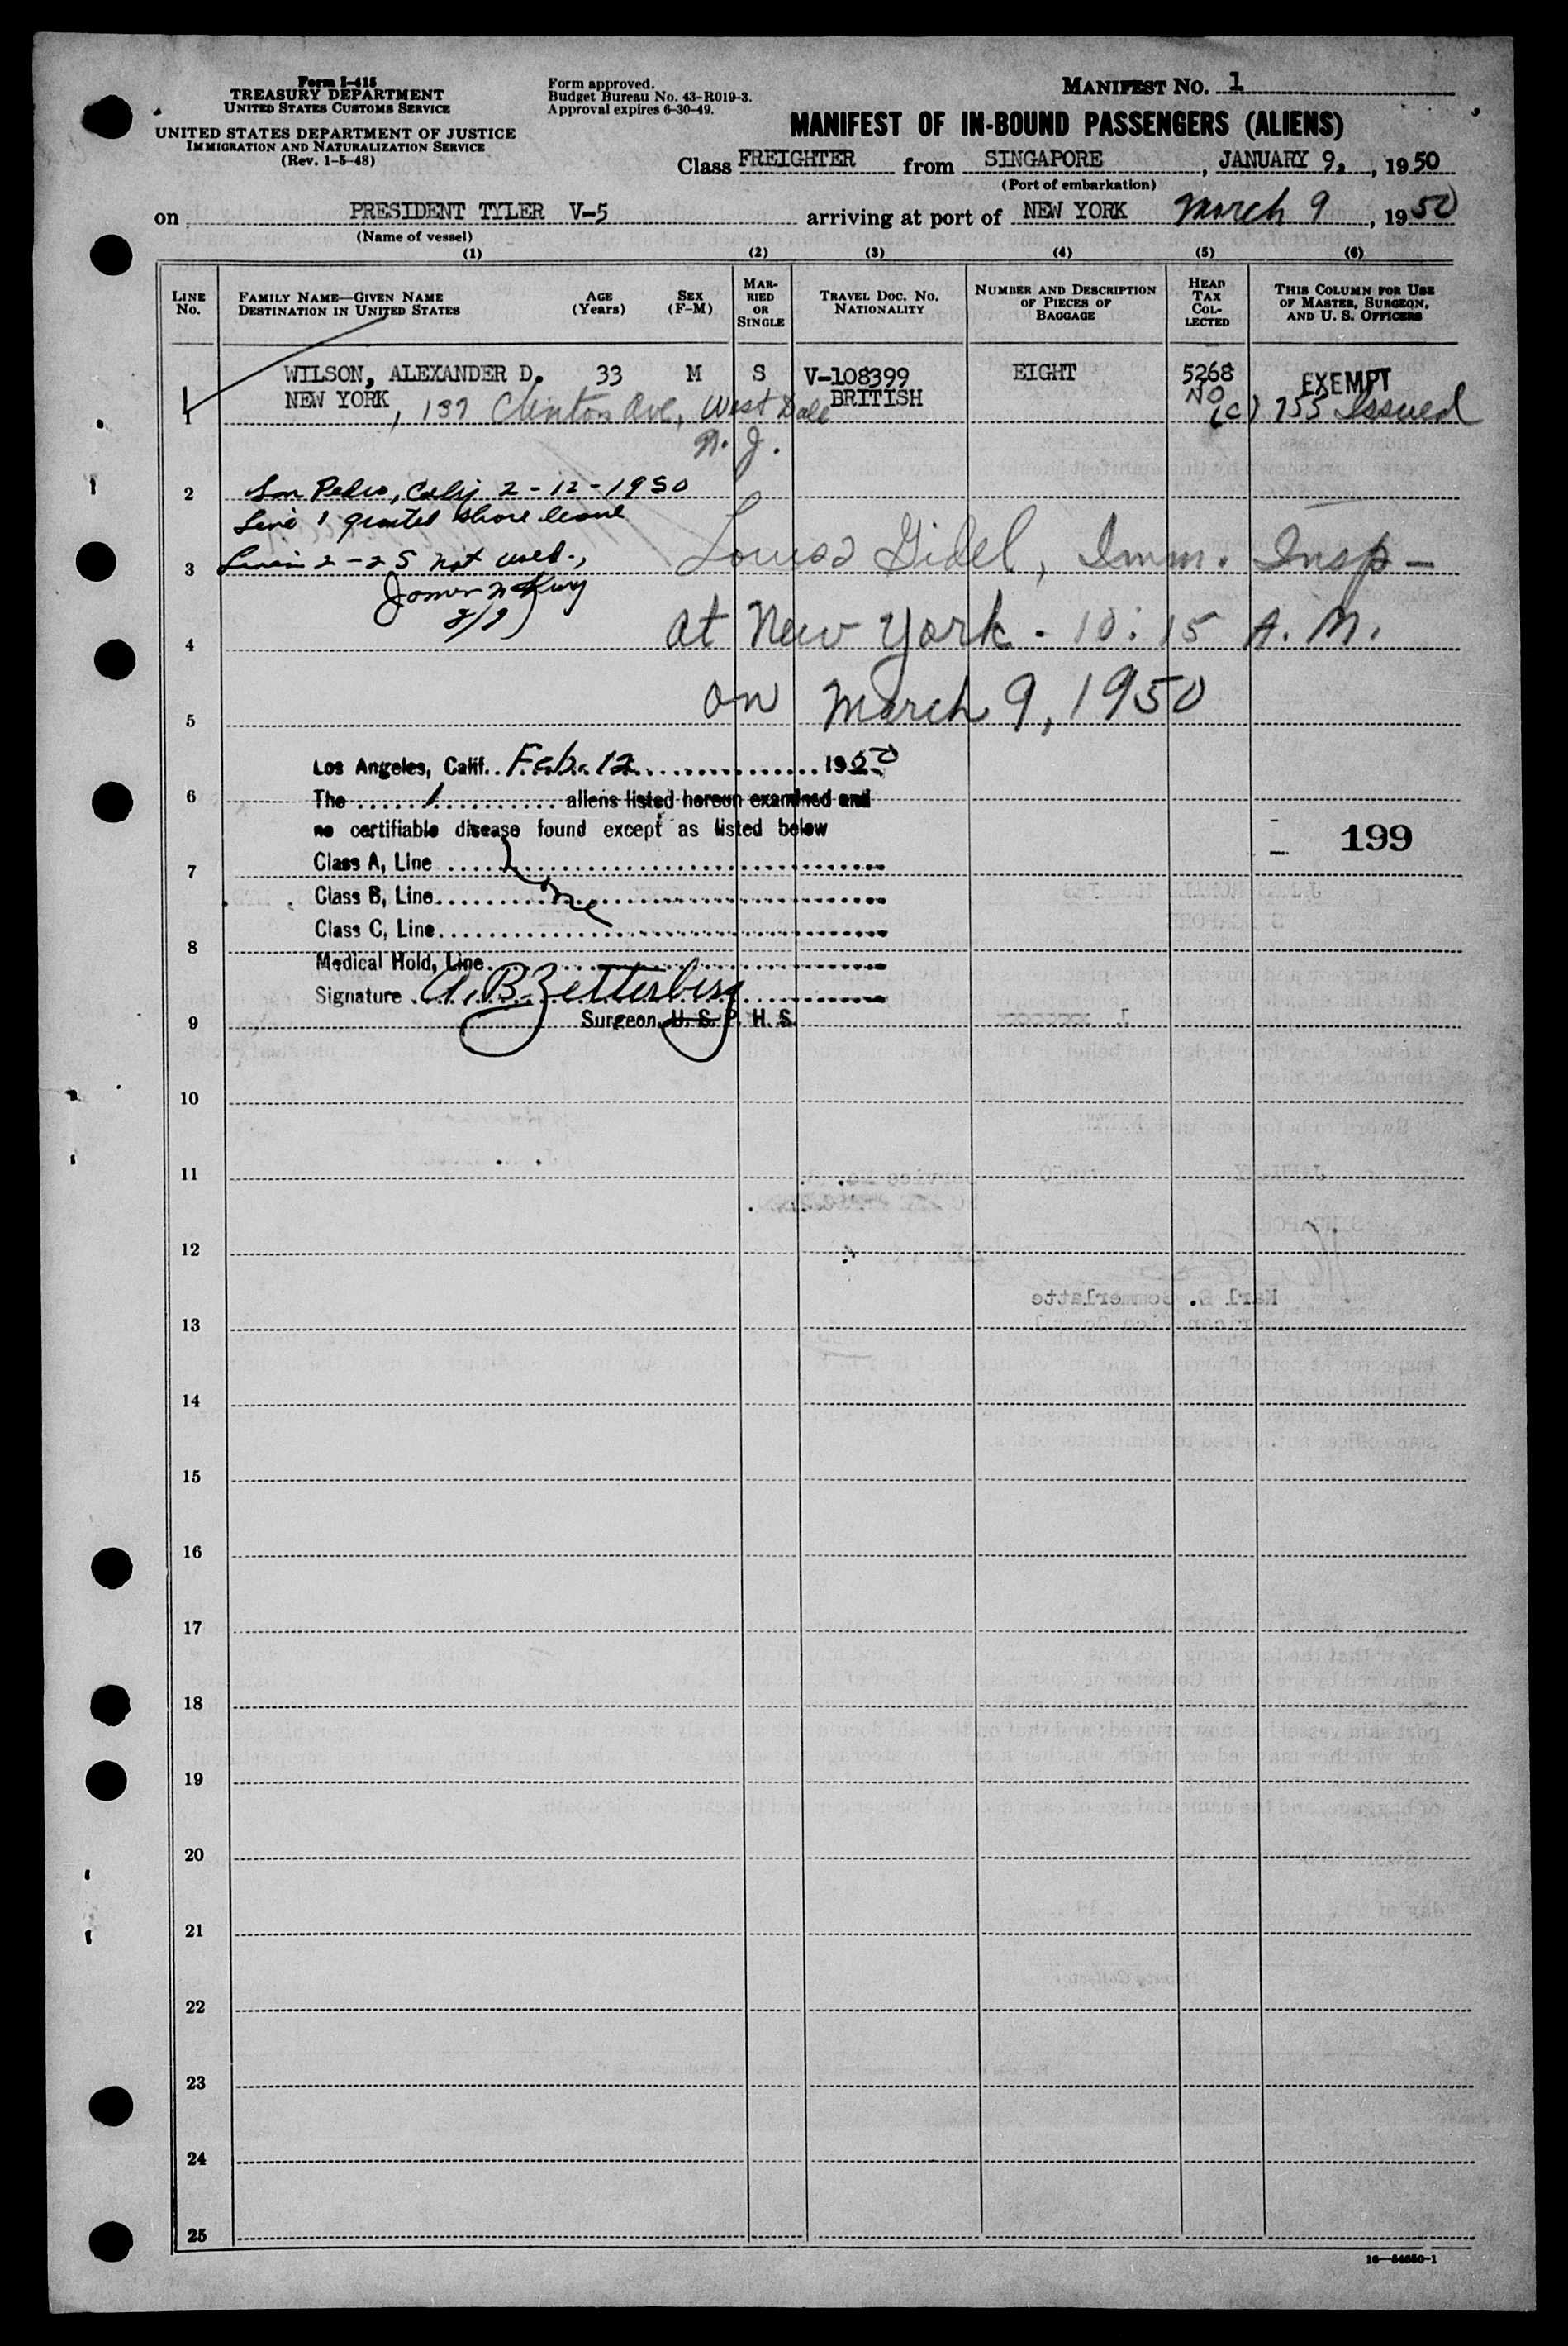 Form I-415
TREASURY DEPARTMENT
UNITED STATES CUSTOMS SERVICE
UNITED STATES DEPARTMENT OF JUSTICE
IMMIGRATION AND NATURALIZATION SERVICE
(Rev. 1-5-48)
Form approved.
Budget Bureau No. 43-R019-3.
Approval expires 6-30-49.
MANIFEST NO. 1
MANIFEST OF IN-BOUND PASSENGERS (ALIENS)
Class FREIGHTER from SINGAPORE, JANUARY 9, 1950
(Port of embarkation)
on PRESIDENT TYLER V-5 arriving at port of NEW YORK March 9, 1950
(Name of vessel)
(1) (2) (3) (4) (5) (6)
LINE NO.
FAMILY NAME—GIVEN NAME
DESTINATION IN UNITED STATES
AGE (Years)
SEX (F-M)
MARRIED OR SINGLE
TRAVEL DOC. NO.
NATIONALITY
NUMBER AND DESCRIPTION OF PIECES OF BAGGAGE
HEAD TAX COLLECTED
THIS COLUMN FOR USE OF MASTER, SURGEON, AND U. S. OFFICERS
1 WILSON, ALEXANDER D. 33 M S V-108399 EIGHT 5268 EXEMPT
NEW YORK, 137 Clinton Ave, West Dale BRITISH NO (c) 755 Issued
N. J.
2 San Pedro, Calif 2-12-1950
Line 1 granted shore leave
3 Lines 2-25 not used.
Gidel, Imm. Insp-
4 at New York - 10:15 A.M.
5 on March 9, 1950
Los Angeles, Calif. Feb. 12 1950
6 The 1 aliens listed hereon examined and
no certifiable disease found except as listed below
199
7 Class A, Line
Class B, Line
Class C, Line
8
Medical Hold, Line
Signature A. B. Zetterberg
9 Surgeon, U. S. P. H. S.
10
11
12
Karl E. Sommerlatte
13
14
15
16
17
18
19
20
21
22
23
24
25
16—54650-1